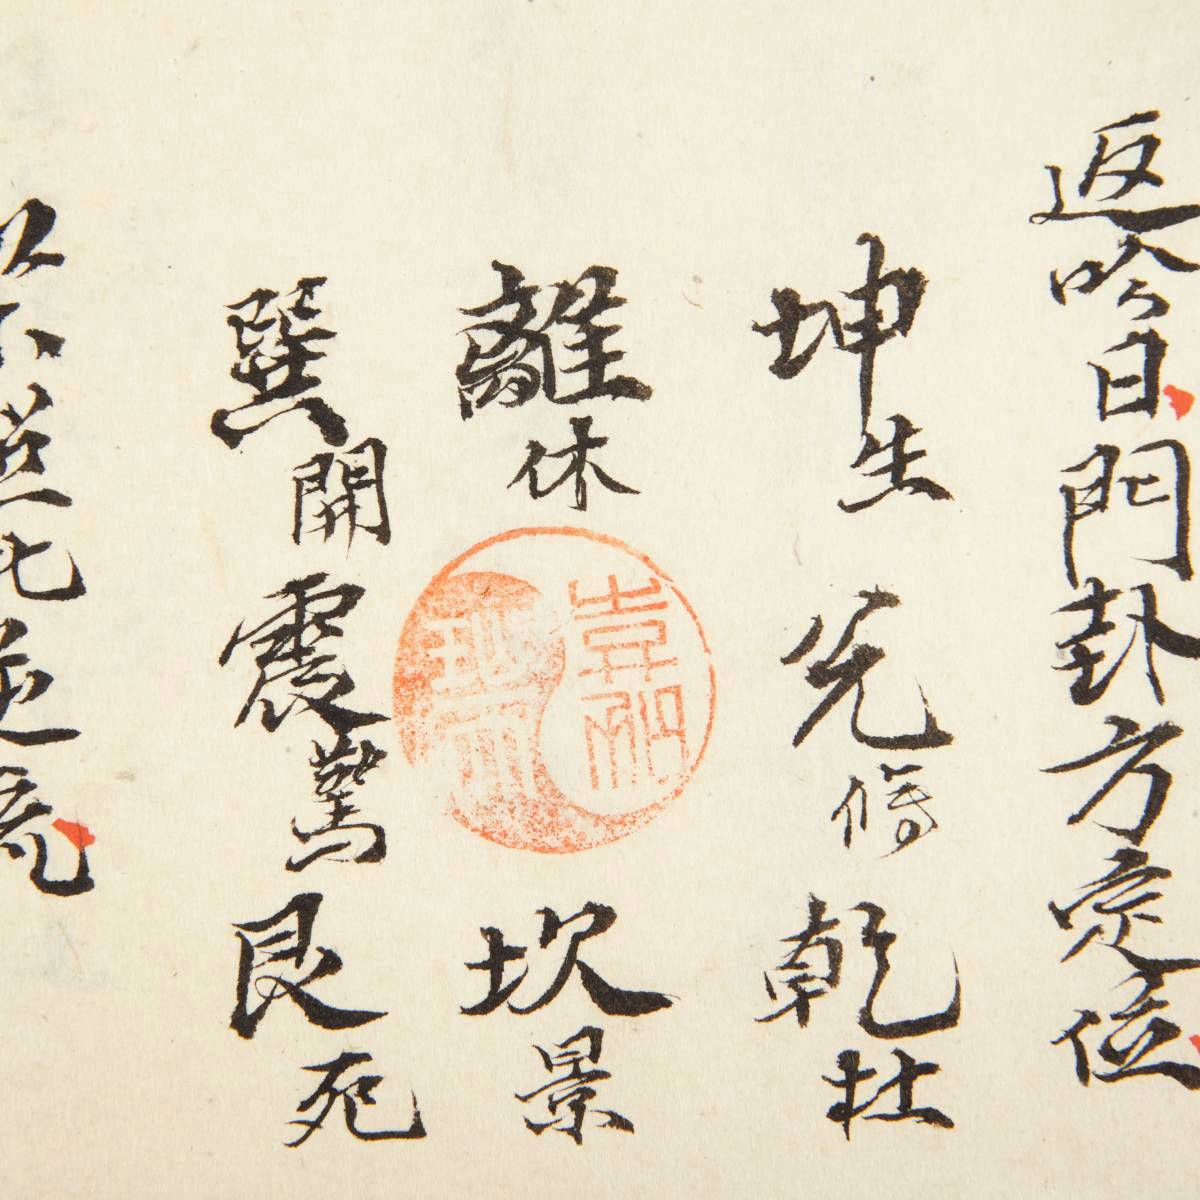 返吟日門卦方定位
坤生 兌傷 乾杜
離休 坎景
巽開 震驚 艮死